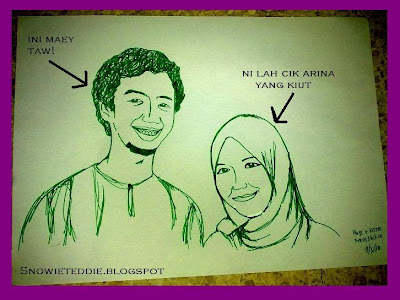 INI MAEY
TAW!
NI LAH CIK ARINA
YANG KIUT
SNOWIETEDDIE.BLOGSPOT